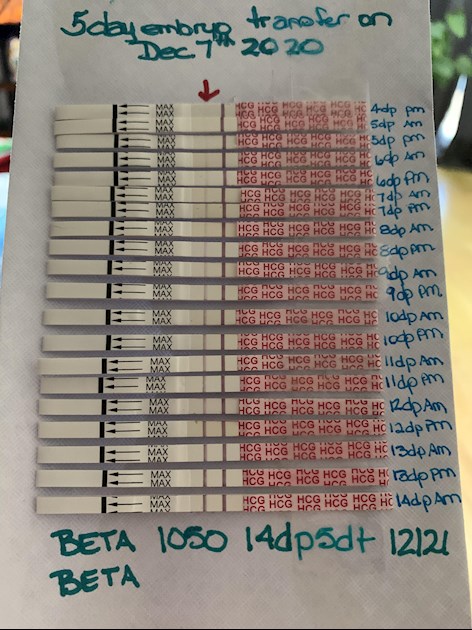 5day embryo transfer on
Dec 7th 2020
MAX HCG HCG HCG HCG HCG 4dp pm
MAX HCG HCG HCG HCG HCG 5dp Am
MAX HCG HCG HCG HCG HCG 5dp pm
MAX HCG HCG HCG HCG HCG 6dp Am
MAX HCG HCG HCG HCG HCG 6dp pm
MAX HCG HCG HCG HCG HCG 7dp Am
MAX HCG HCG HCG HCG HCG 7dp pm
MAX HCG HCG HCG HCG HCG 8dp Am
MAX HCG HCG HCG HCG HCG 8dp pm
MAX HCG HCG HCG HCG HCG 9dp Am
MAX HCG HCG HCG HCG HCG 9dp pm
MAX HCG HCG HCG HCG HCG 10dp Am
MAX HCG HCG HCG HCG HCG 10dp pm
MAX HCG HCG HCG HCG HCG 11dp Am
MAX HCG HCG HCG HCG HCG 11dp pm
MAX HCG HCG HCG HCG HCG 12dp Am
MAX HCG HCG HCG HCG HCG 12dp pm
MAX HCG HCG HCG HCG HCG 13dp Am
MAX HCG HCG HCG HCG HCG 13dp pm
MAX HCG HCG HCG HCG HCG 14dp Am
BETA 1050 14dp5dt 12/21
BETA